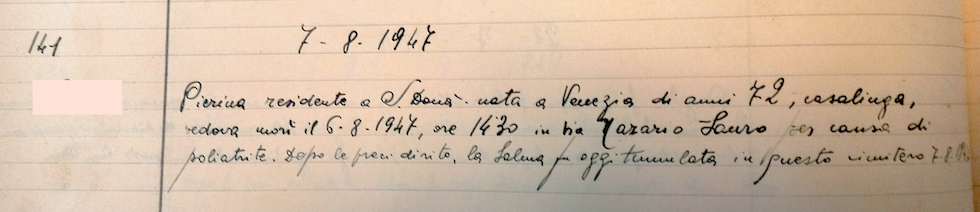 141
7-8.1947
Pierina residente a S. Donà. nata a Venezia di anni 72, casalinga,
vedova morì il 6-8.1947, ore 1430 in via Nazario Sauro per causa di
poliatrite. Dopo le preci di rito, la Salma fu oggi tumulata in questo cimitero 7.8.